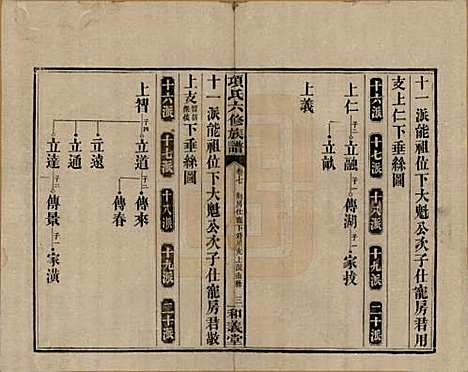 十一派能祖位下大魁公次子仕寵房君用
支上仁下垂絲圖
十六派 十七派 十八派 十九派 二十派
上仁 子二 立融 子一 傳湖 子一 家技
立猷
上義
項氏六修族譜
三 和義堂
十一派能祖位下大魁公次子仕寵房君敖
上支 下垂絲圖
十六派 十七派 十八派 十九派 二十派
上智 子四 立道 子二 傳來
傳春
立遠
立通
立達 子一 傳景 子一 家潢